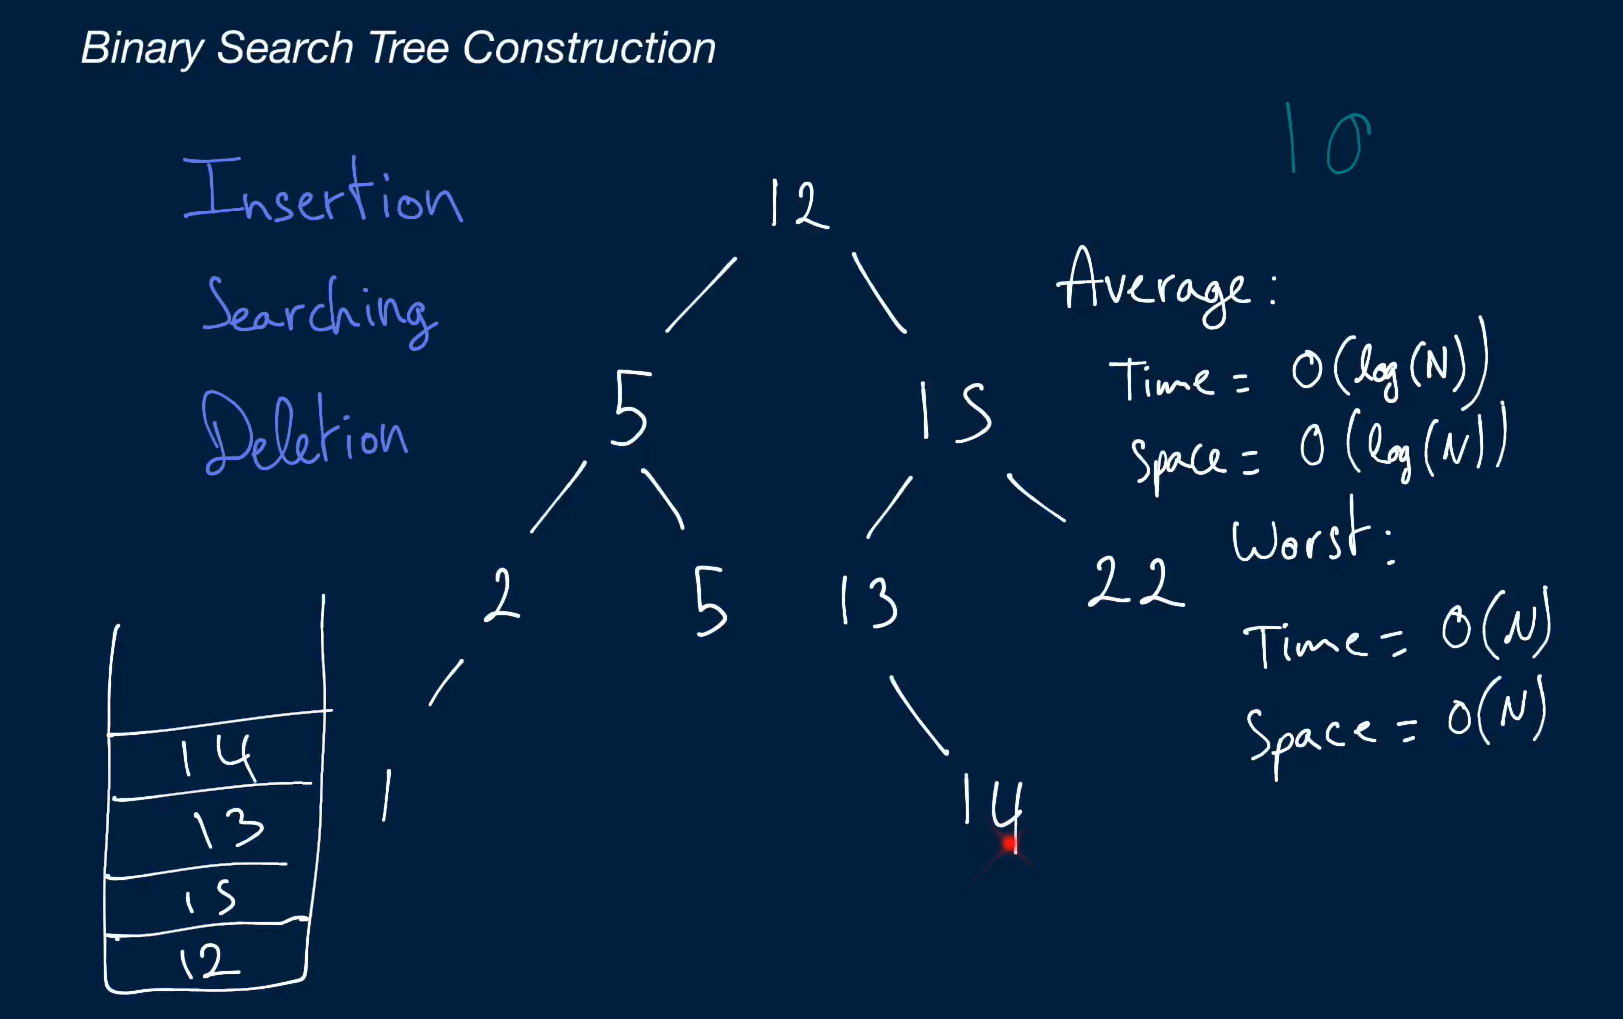 Binary Search Tree Construction
10
Insertion
Searching
Deletion
12
5 15
2 5 13 22
1 14
Average:
Time = O(log(N))
Space = O(log(N))
Worst:
Time = O(N)
Space = O(N)
14
13
15
12